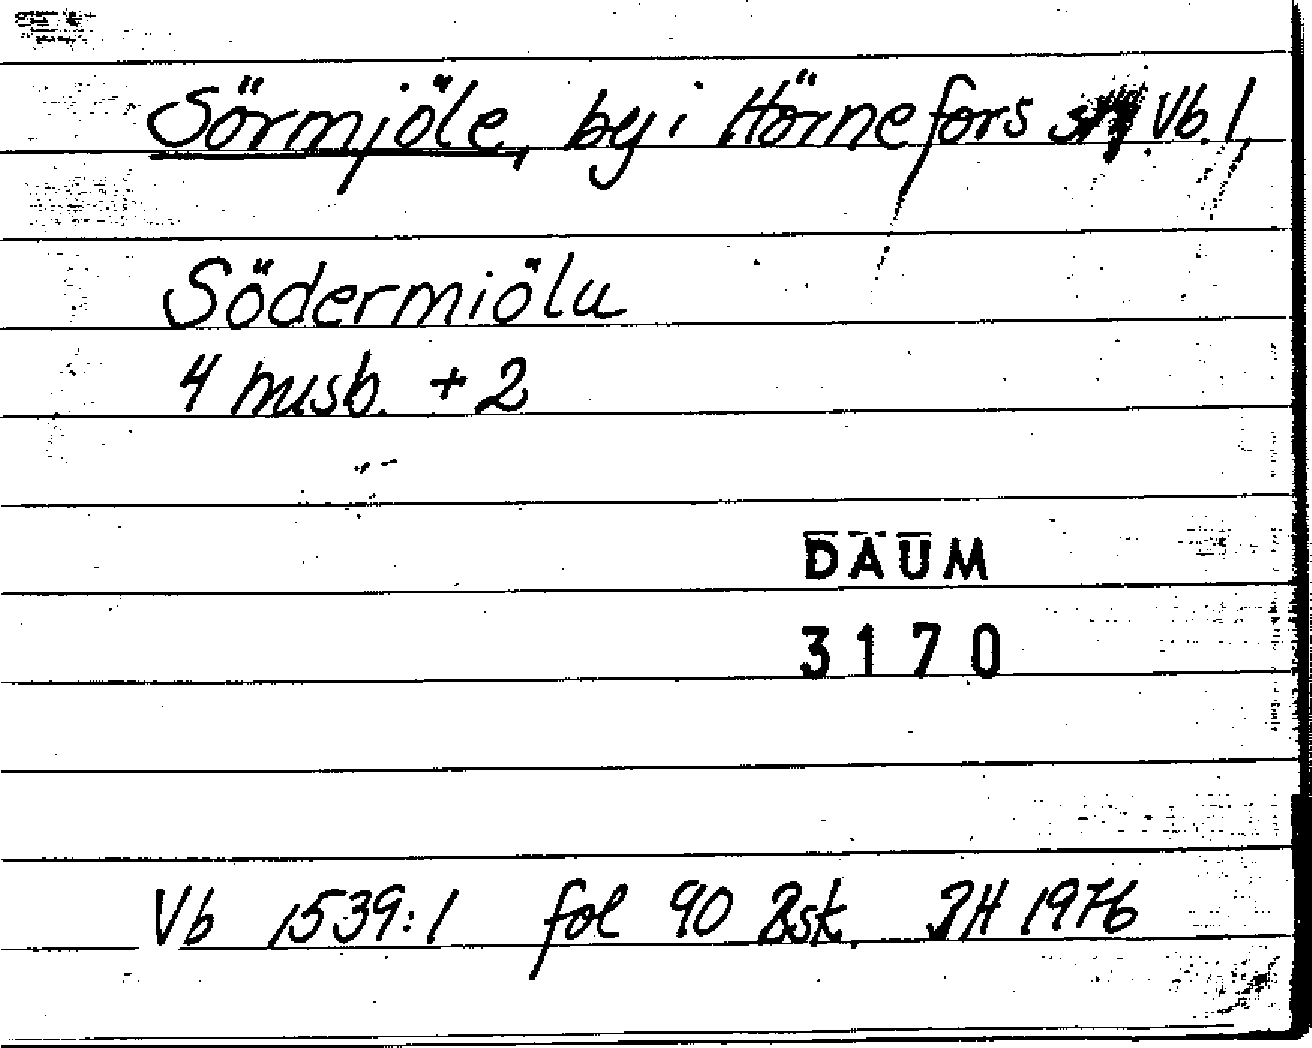 Sörmjöle, by i Hörnefors sn Vb. l.
Södermiölu
4 husb. + 2
DAUM
3170
Vb 1539:1 fol 90 Bsk. JH 1976